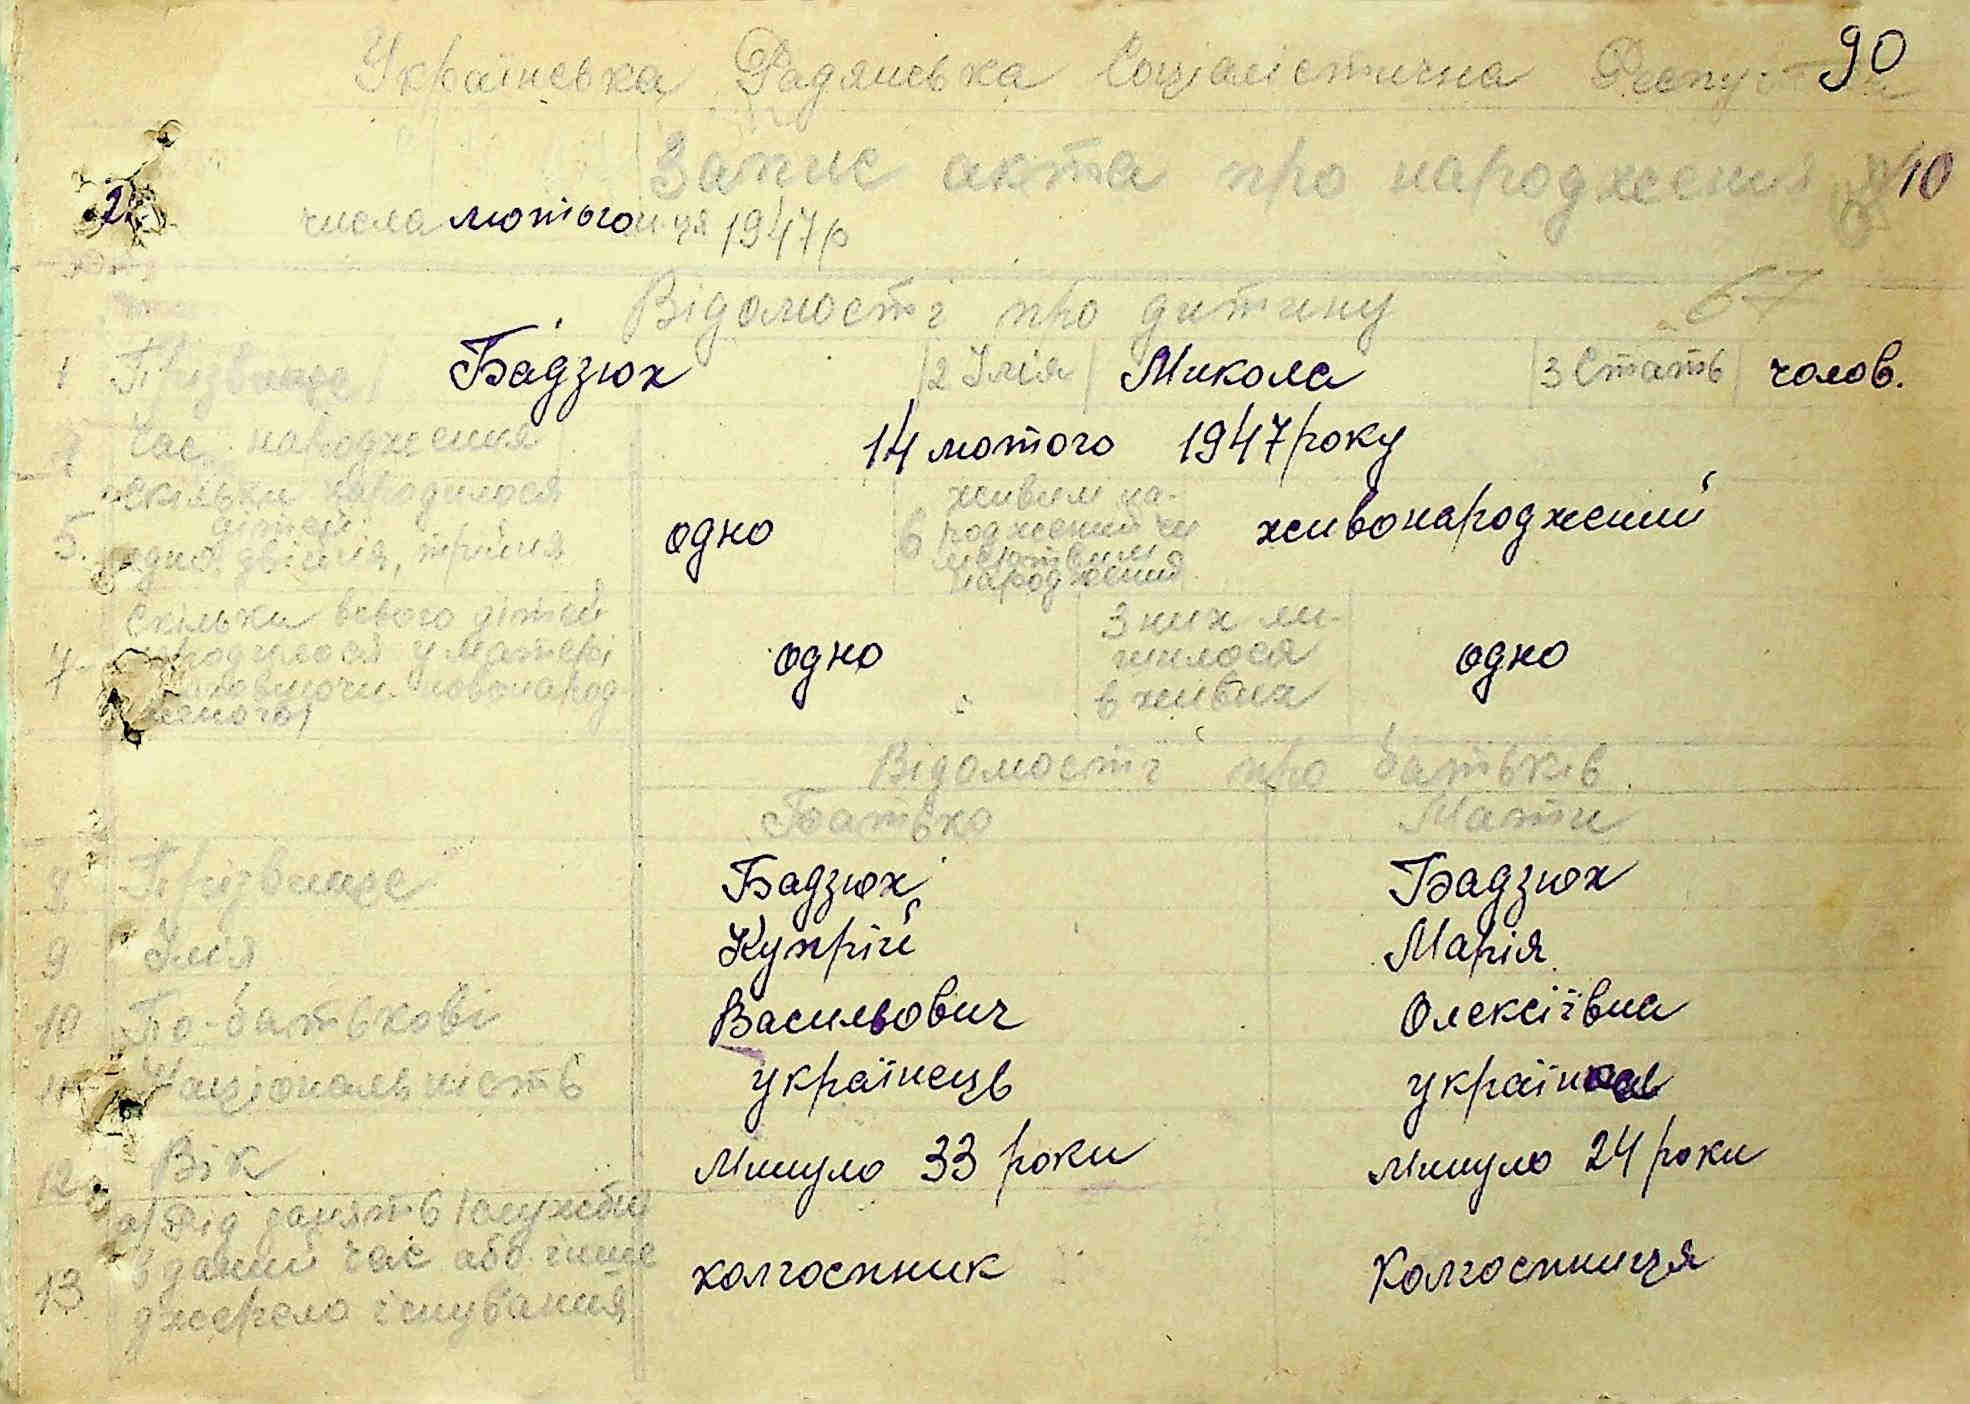 90
Українська Радянська Соціалістична
Запис акта про народження № 10
2 числа лютого м-ця 1947 р
67
Відомості про дитину
1 Прізвище Бадзюх 2 Імія Микола 3 Стать чолов.
4 Час народження 14 лютого 1947 року
5. Скільки народилося дітей: одно, двійня, трійня одно 6 живим на-
роджений чи
мертвим
народжений живонароджений
7 Скільки всього дітей
народилося у матері
новонарод-
женого) одно З них ли-
шилося
в живих одно
Відомості про батьків
Батько Мати
8 Прізвище Бадзюх Бадзюх
9 Імія Купрій Марія
10 По-батькові Васильович Олексіївна
11 Національність українець українка
12 Вік Минуло 33 роки Минуло 24 роки
13 а) Рід занять /служби
в даний час або інше
джерело існування колгоспник Колгоспниця